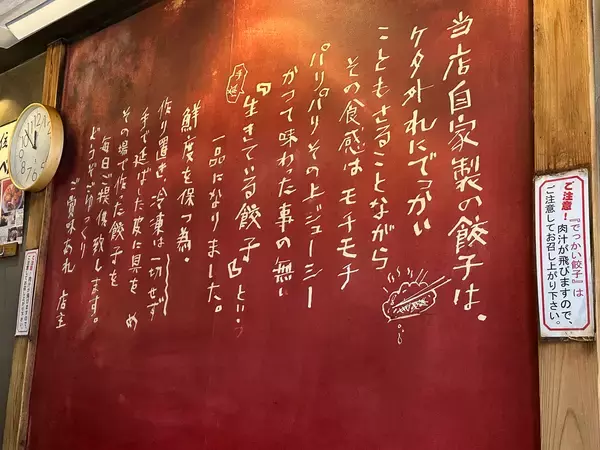 当店自家製の餃子は、
ケタ外れにでっかい
こともさることながら
その食感はモチモチ
パリパリその上ジューシー
かつて味わった事の無い
手延
『生きている餃子』という
一品になりました。
鮮度を保つ為、
作り置き、冷凍は一切せず
手で延ばした皮に具をつめ
その場で作った餃子を
毎日ご提供致します。
どうぞごゆっくり
ご賞味あれ 店主
ご注意!
『でっかい餃子』は
肉汁が飛びますので、
ご注意してお召し上がり下さい。